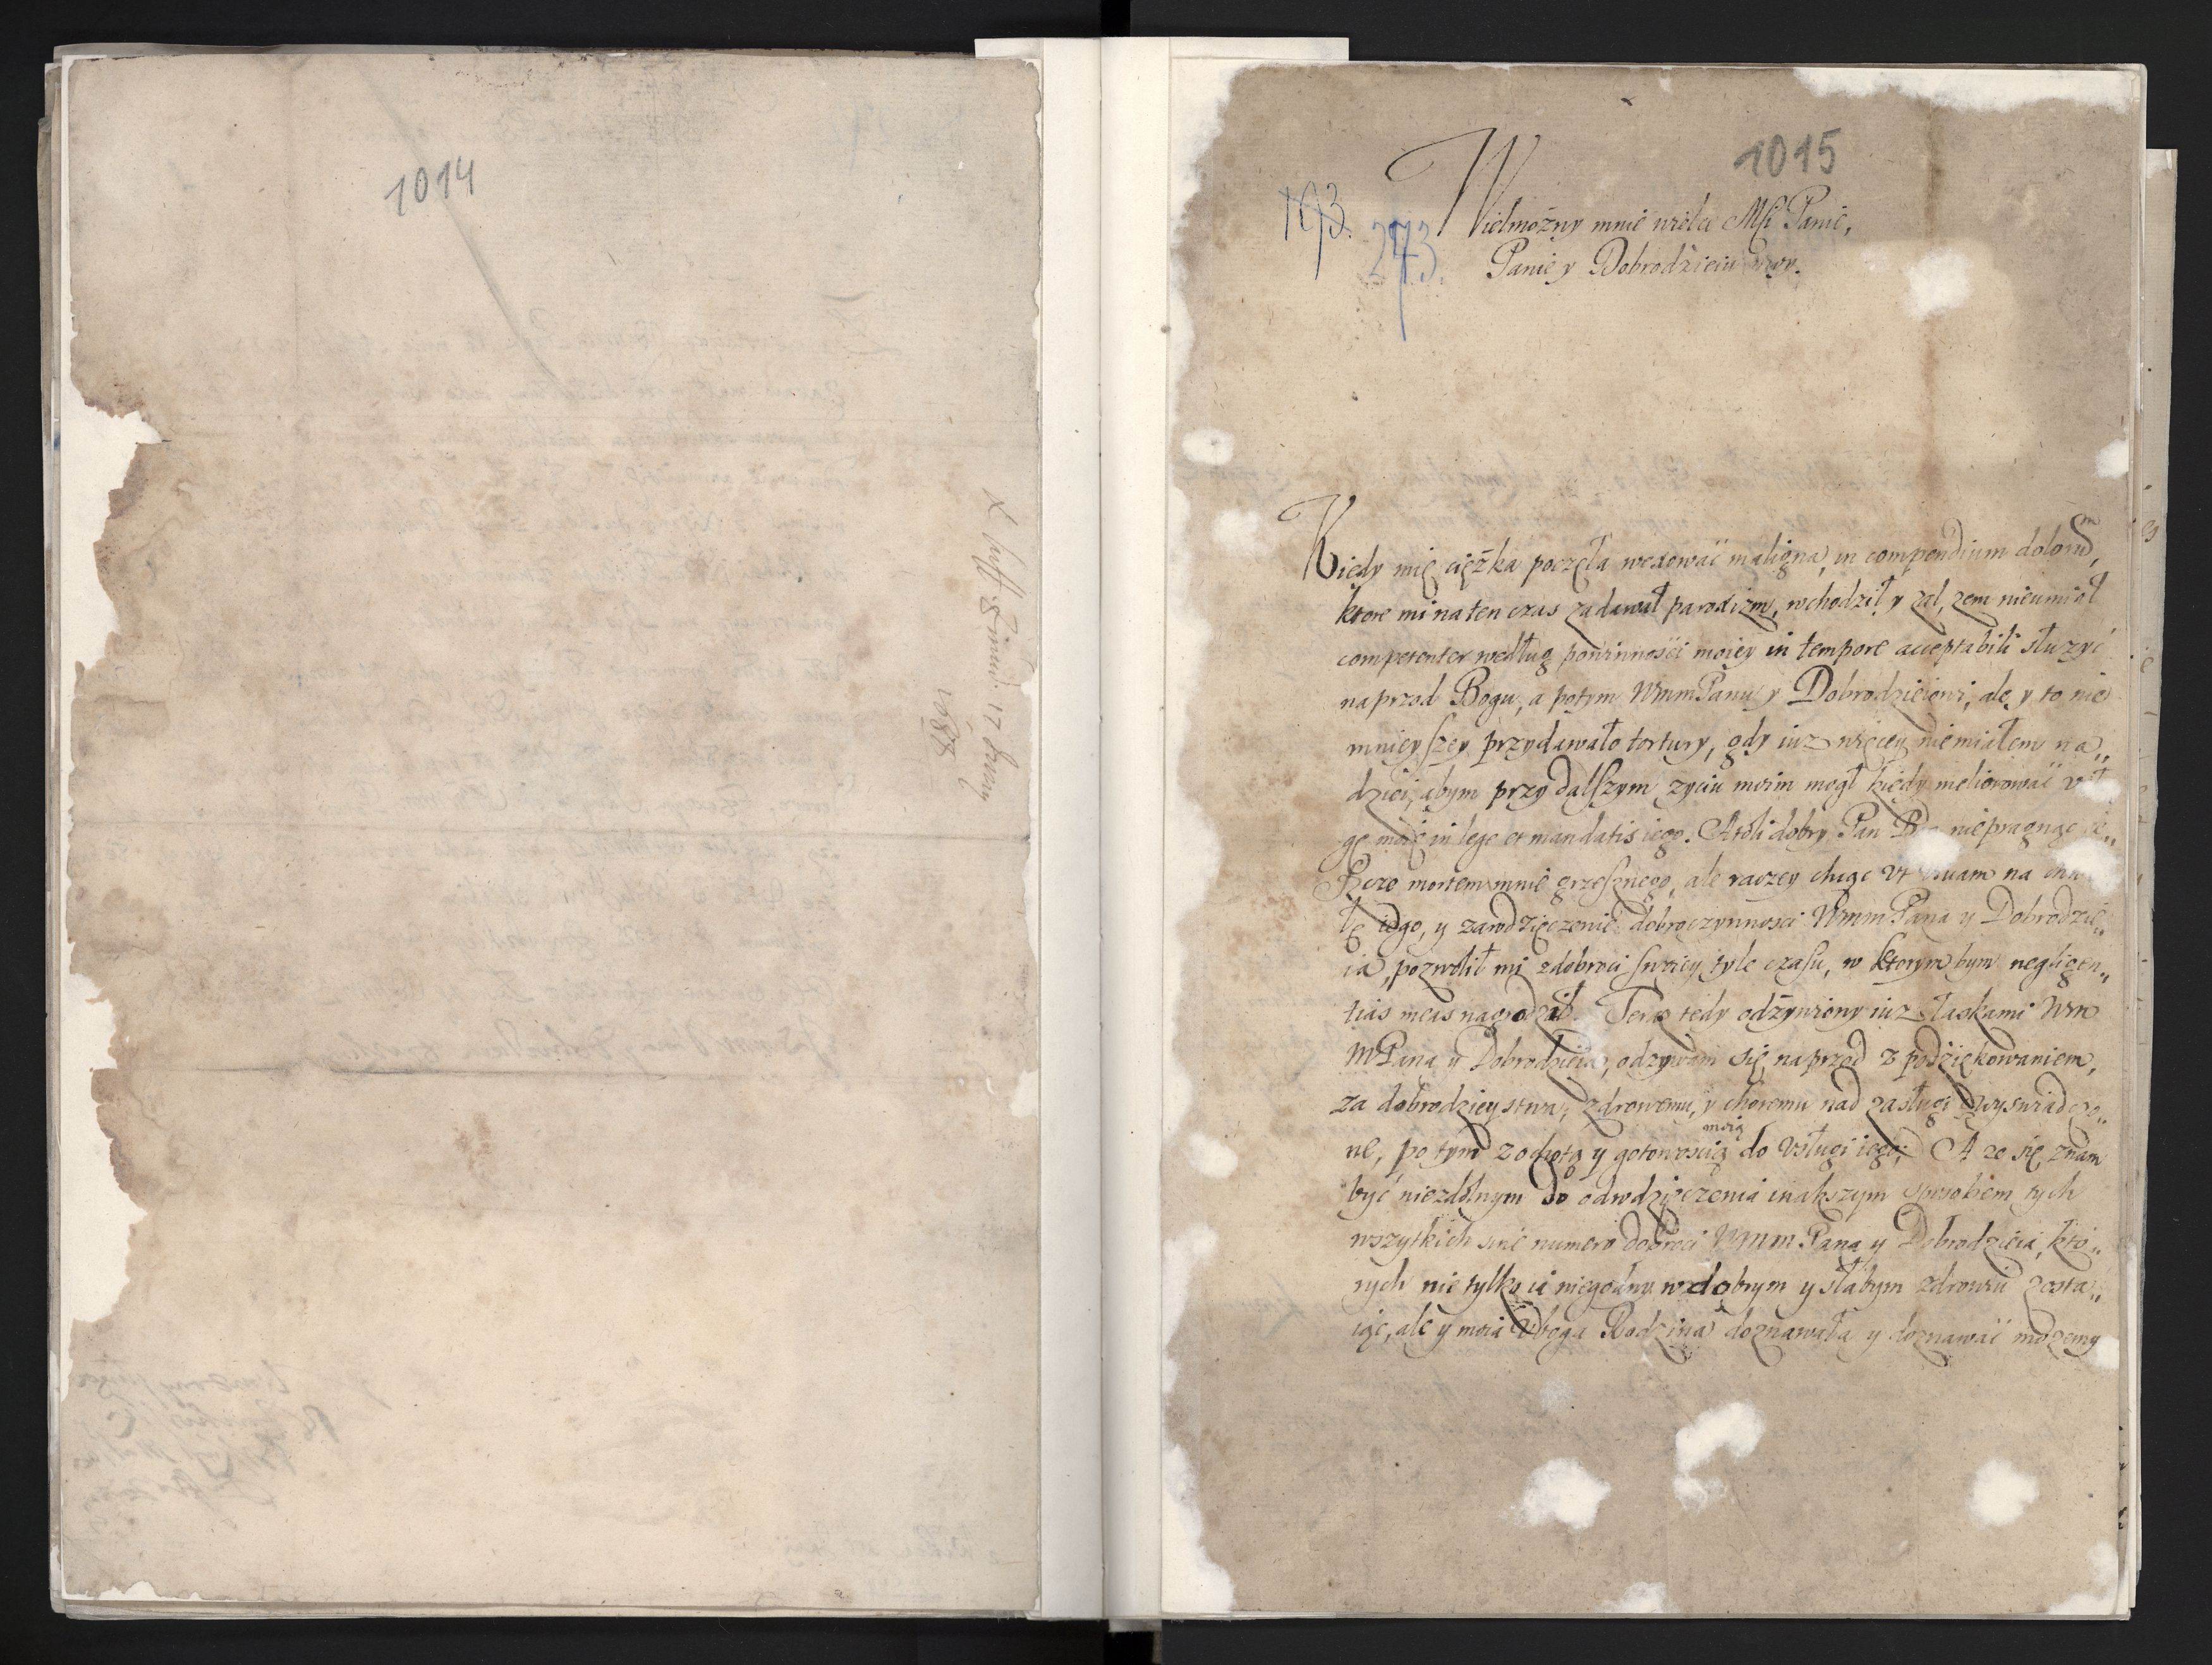 1014
X. Suff. Zmud. 17 Juny
1688
1015
193.
273.
Wielmozny mnie wielce Mści Panie,
Panie y Dobrodzieiu moy.
Kiedy mię cięzka poczęła wexować maligna, in compendium dolorū,
ktore mi na ten czas zadawał paroxizm, wchodził y zal, zem nieumiał
competenter według powinności moiey in tempore acceptabili słuzyć
naprzod Bogu, a potym WmmPanu y Dobrodzieiowi, ale y to nie
mnieyszey przydawało tortury, gdy iuz więcey niemiałem na„
dziei, abym przy dalszym zyciu moim mogł kiedy meliorować
gę moię in lege et mandatis iego. Atoli dobry Pan niepragnąc
mortem mnie grzesznego, ale raczey chcąc vt na
łę iego, y zawdzięczenie dobroczynnosci WmmPana y Dobrodzie„
ia, pozwolił mi zdobroci swoiey tyle czasu, w ktorym bym negligen„
tias meas nagrodził. Teraz tedy odzywiony iuz łaskami Wm
MPana y Dobrodzieia, odzywam się naprzod z podziękowaniem,
za dobrodzieystwa, zdrowemu, y choremu nad zasługi wyswiadczo„
ne, po tym z ochotą y gotowoscią moią do vsługi iego; A ze się znam
być niezdolnym do odwdzięczenia inakszym sposobem tych
wszytkich sine numero dobroci WmmPana y Dobrodzieia, kto„
rych nie tylko ia niegodny w dobrym y słabym zdrowiu zosta„
iąc, ale y moia Vboga Rodzina doznawała y doznawać mozemy